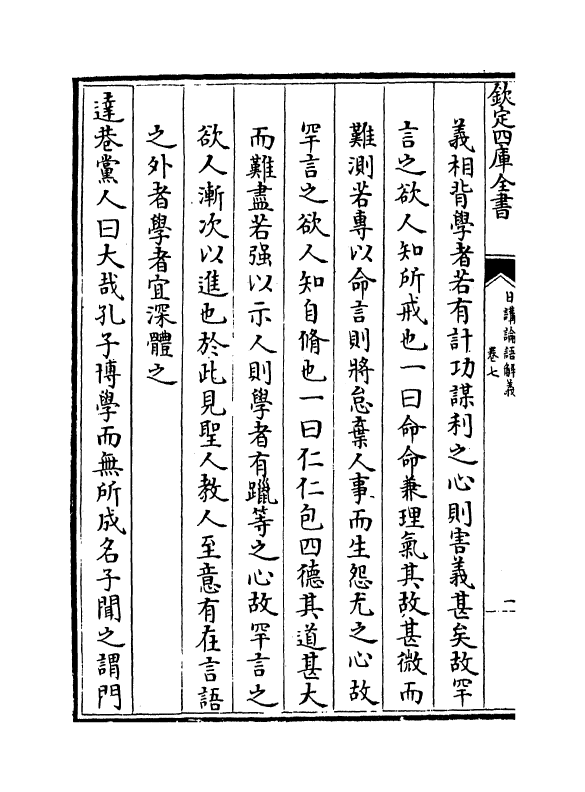 欽定四庫全書
日講論語解義
卷七
一
義相背學者若有計功謀利之心則害義甚矣故罕
言之欲人知所戒也一曰命命兼理氣其故甚微而
難測若專以命言則將怠棄人事而生怨尤之心故
罕言之欲人知自脩也一曰仁仁包四德其道甚大
而難盡若强以示人則學者有躐等之心故罕言之
欲人漸次以進也於此見聖人教人至意有在言語
之外者學者宜深體之
達巷黨人曰大哉孔子博學而無所成名子聞之謂門